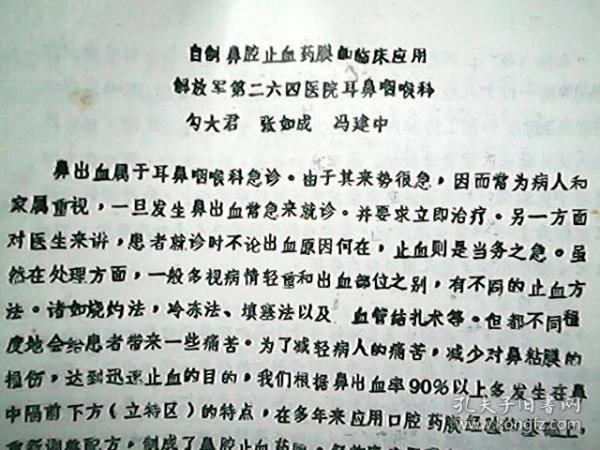 自制鼻腔止血药膜的临床应用
解放军第二六四医院耳鼻咽喉科
勾大君 张如成 冯建中
鼻出血属于耳鼻咽喉科急诊。由于其来势很急，因而常为病人和
家属重视，一旦发生鼻出血常急来就诊。并要求立即治疗。另一方面
对医生来讲，患者就诊时不论出血原因何在，止血则是当务之急。虽
然在处理方面，一般多视病情轻重和出血部位之别，有不同的止血方
法。诸如烧灼法，冷冻法、填塞法以及 血管结扎术等。但都不同程
度地会给患者带来一些痛苦。为了减轻病人的痛苦，减少对鼻粘膜的
损伤，达到迅速止血的目的，我们根据鼻出血率90%以上多发生在鼻
中隔前下方（立特区）的特点，在多年来应用口腔药膜经验的基础上，
重新调整配方，制成了鼻腔止血药膜。
孔夫子旧书网
www.kongfz.com